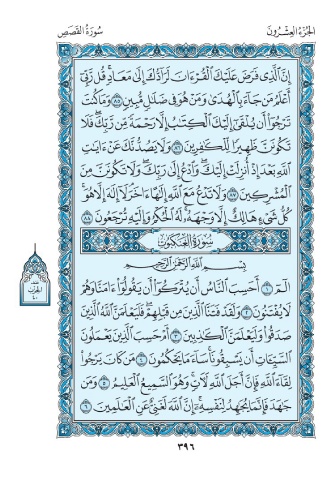 الجزء العشرون
سورة القصص
إن الذي فرض عليك القرءان لرادك إلى معاد قل ربي
أعلم من جاء بالهدى ومن هو في ضلل مبين ٨٥ وما كنت
ترجوا أن يلقى إليك الكتب إلا رحمة من ربك فلا
تكونن ظهيرا للكفرين ٨٦ ولا يصدنك عن ءايت
الله بعد إذ أنزلت إليك وادع إلى ربك ولا تكونن من
المشركين ٨٧ ولا تدع مع الله إلها ءاخر لا إله إلا هو
كل شيء هالك إلا وجهه له الحكم وإليه ترجعون ٨٨
سورة العنكبوت
بسم الله الرحمن الرحيم
الم ١ أحسب الناس أن يتركوا أن يقولوا ءامنا وهم
لا يفتنون ٢ ولقد فتنا الذين من قبلهم فليعلمن الله الذين
صدقوا وليعلمن الكذبين ٣ أم حسب الذين يعملون
السيئات أن يسبقونا ساء ما يحكمون ٤ من كان يرجوا
لقاء الله فإن أجل الله لأت وهو السميع العليم ٥ ومن
جهد فإنما يجهد لنفسه إن الله لغني عن العلمين ٦
٣٩٦